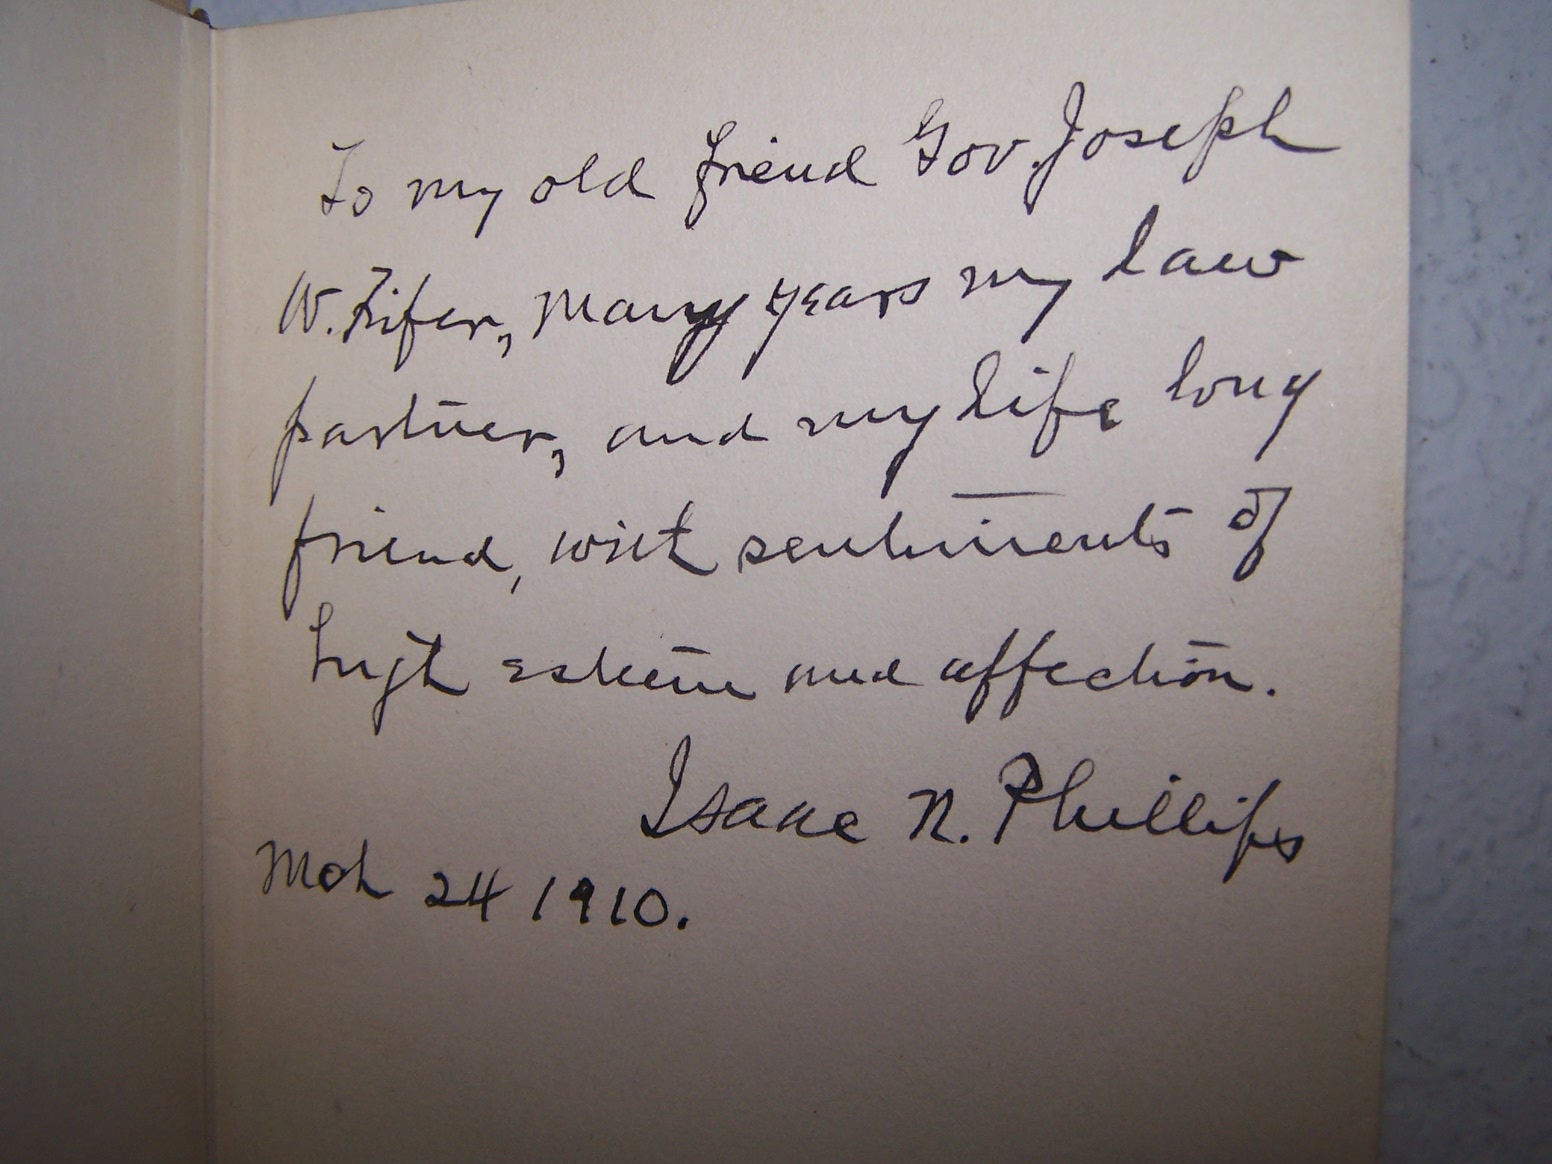 To my old friend Gov. Joseph
W. Fifer, many years my law
partner, and my life long
friend, with sentiments of
high esteem and affection.
Isaac N. Phillips
Mch 24 1910.